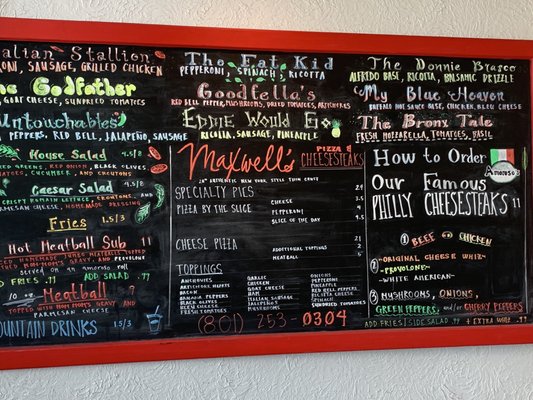 Italian Stallion
PEPPERONI, SAUSAGE, GRILLED CHICKEN
The Godfather
GOAT CHEESE, SUNDRIED TOMATOES
Untouchables
PEPPERS, RED BELL, JALAPEÑO, SAUSAGE
House Salad
RED ONION, BLACK OLIVES
TOMATOES, CUCUMBER, AND CROUTONS
Caesar Salad
CRISPY ROMAINE LETTUCE, CROUTONS
PARMESAN CHEESE, HOMEMADE DRESSING
Fries 1.5/3
Hot Meatball Sub 11
SERVED ON AN AMOROSO ROLL
ADD FRIES .99 SIDE SALAD .99
10 oz Meatball 7
TOPPED WITH MOM MOM'S GRAVY, AND
PARMESAN CHEESE
FOUNTAIN DRINKS 1.5/3
The Fat Kid
PEPPERONI, SPINACH, RICOTTA
Goodfella's
RED BELL PEPPER, MUSHROOMS, DRIED TOMATOES, ARTICHOKES
Eddie Would Go
RICOTTA, SAUSAGE, PINEAPPLE
Maxwell's PIZZA & CHEESESTEAKS
AUTHENTIC NEW YORK STYLE THIN CRUST
SPECIALTY PIES
PIZZA BY THE SLICE
CHEESE
PEPPERONI
SLICE OF THE DAY
CHEESE PIZZA
ADDITIONAL TOPPINGS
MEATBALL
TOPPINGS
ANCHOVIES
ARTICHOKE HEARTS
BACON
BANANA PEPPERS
BLACK OLIVES
FRESH TOMATOES
GARLIC
CHICKEN
GOAT CHEESE
HAM
ITALIAN SAUSAGE
JALAPEÑOS
MUSHROOMS
ONIONS
PEPPERONI
PINEAPPLE
RED BELL PEPPERS
RICOTTA CHEESE
SPINACH
SUNDRIED TOMATOES
(801) 253-0304
The Donnie Brasco
ALFREDO BASE, RICOTTA, BALSAMIC DRIZZLE
My Blue Heaven
BUFFALO HOT SAUCE BASE, CHICKEN, BLEU CHEESE
The Bronx Tale
FRESH MOZZARELLA, TOMATOES, BASIL
How to Order
Amoroso's
Our Famous
PHILLY CHEESESTEAKS 11
① BEEF OR CHICKEN
② -ORIGINAL CHEESE WHIZ-
-PROVOLONE-
-WHITE AMERICAN-
③ MUSHROOMS, ONIONS,
GREEN PEPPERS, and/or CHERRY PEPPERS
ADD FRIES|SIDE SALAD .99 + EXTRA WHIZ .99